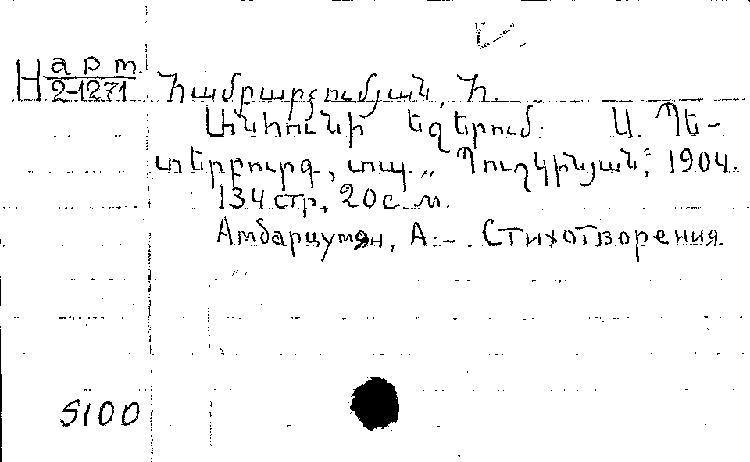 Н арт
2-1271
Համբարցումյան, Հ.
եզերում. Ս. Պե-
տերբուրգ, տպ. „Պուշկինյան“, 1904.
134 стр, 20 с. м.
Амбарцумян, А. – Стихотворения.
5100